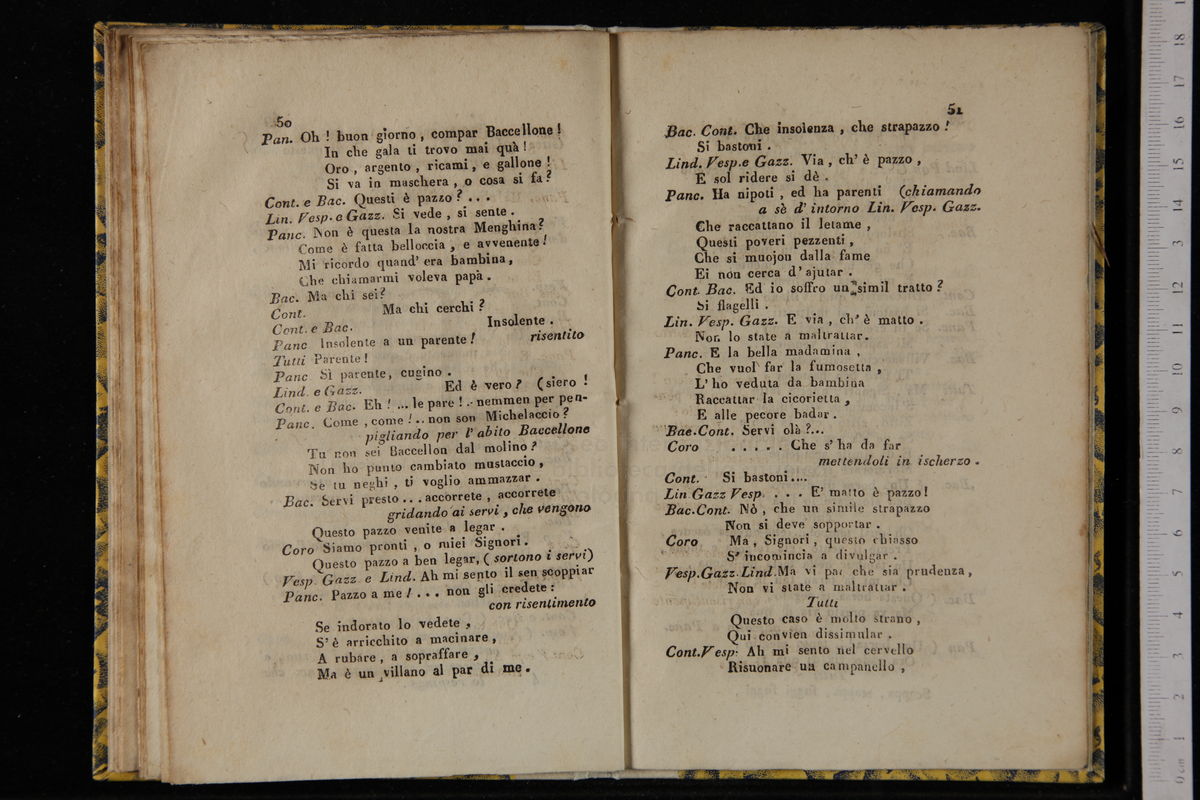 50
Pan. Oh ! buon giorno , compar Baccellone !
In che gala ti trovo mai quà !
Oro , argento , ricami , e gallone !
Si va in maschera , o cosa si fa ?
Cont. e Bac. Questi è pazzo ? . . .
Lin. Vesp. e Gazz. Si vede , si sente .
Panc. Non è questa la nostra Menghina ?
Come è fatta belloccia , e avvenente !
Mi ricordo quand' era bambina ,
Che chiamarmi voleva papà .
Bac. Ma chi sei ?
Cont. Ma chi cerchi ?
Cont. e Bac. Insolente .
Panc Insolente a un parente ! risentito
Tutti Parente !
Panc Sì parente, cugino .
Lind. e Gazz. Ed è vero ? ( siero !
Cont. e Bac. Eh ! ... le pare ! .. nemmen per pen-
Panc. Come , come ! .. non son Michelaccio ?
pigliando per l' abito Baccellone
Tu non sei Baccellon dal molino ?
Non ho punto cambiato mustaccio ,
Se tu neghi , ti voglio ammazzar .
Bac. Servi presto . . . accorrete , accorrete
gridando ai servi , che vengono
Questo pazzo venite a legar .
Coro Siamo pronti , o miei Signori .
Questo pazzo a ben legar, ( sortono i servi)
Vesp. Gazz e Lind. Ah mi sento il sen scoppiar
Panc. Pazzo a me ! . . . non gli credete :
con risentimento
Se indorato lo vedete ,
S' è arricchito a macinare ,
A rubare , a sopraffare ,
Ma è un villano al par di me .
51
Bac. Cont. Che insolenza , che strapazzo !
Si bastoni .
Lind. Vesp. e Gazz. Via , ch' è pazzo ,
E sol ridere si dè .
Panc. Ha nipoti , ed ha parenti (chiamando
a sè d' intorno Lin. Vesp. Gazz.
Che raccattano il letame ,
Questi poveri pezzenti ,
Che si muojon dalla fame
Ei non cerca d' ajutar .
Cont. Bac. Ed io soffro un simil tratto ?
Si flagelli .
Lin. Vesp. Gazz. E via , ch' è matto .
Non lo state a maltrattar.
Panc. E la bella madamina ,
Che vuol far la fumosetta ,
L' ho veduta da bambina
Raccattar la cicorietta ,
E alle pecore badar .
Bae.Cont. Servi olà ?...
Coro . . . . . Che s' ha da far
mettendoli in ischerzo .
Cont. Si bastoni....
Lin Gazz Vesp. . . . E' matto è pazzo !
Bac.Cont. Nò , che un simile strapazzo
Non si deve sopportar .
Coro Ma , Signori , questo chiasso
S' incomincia a divulgar .
Vesp.Gazz.Lind.Ma vi par che sia prudenza ,
Non vi state a maltrattar .
Tutti
Questo caso è molto strano ,
Qui convien dissimular .
Cont.Vesp: Ah mi sento nel cervello
Risuonare un campanello ,